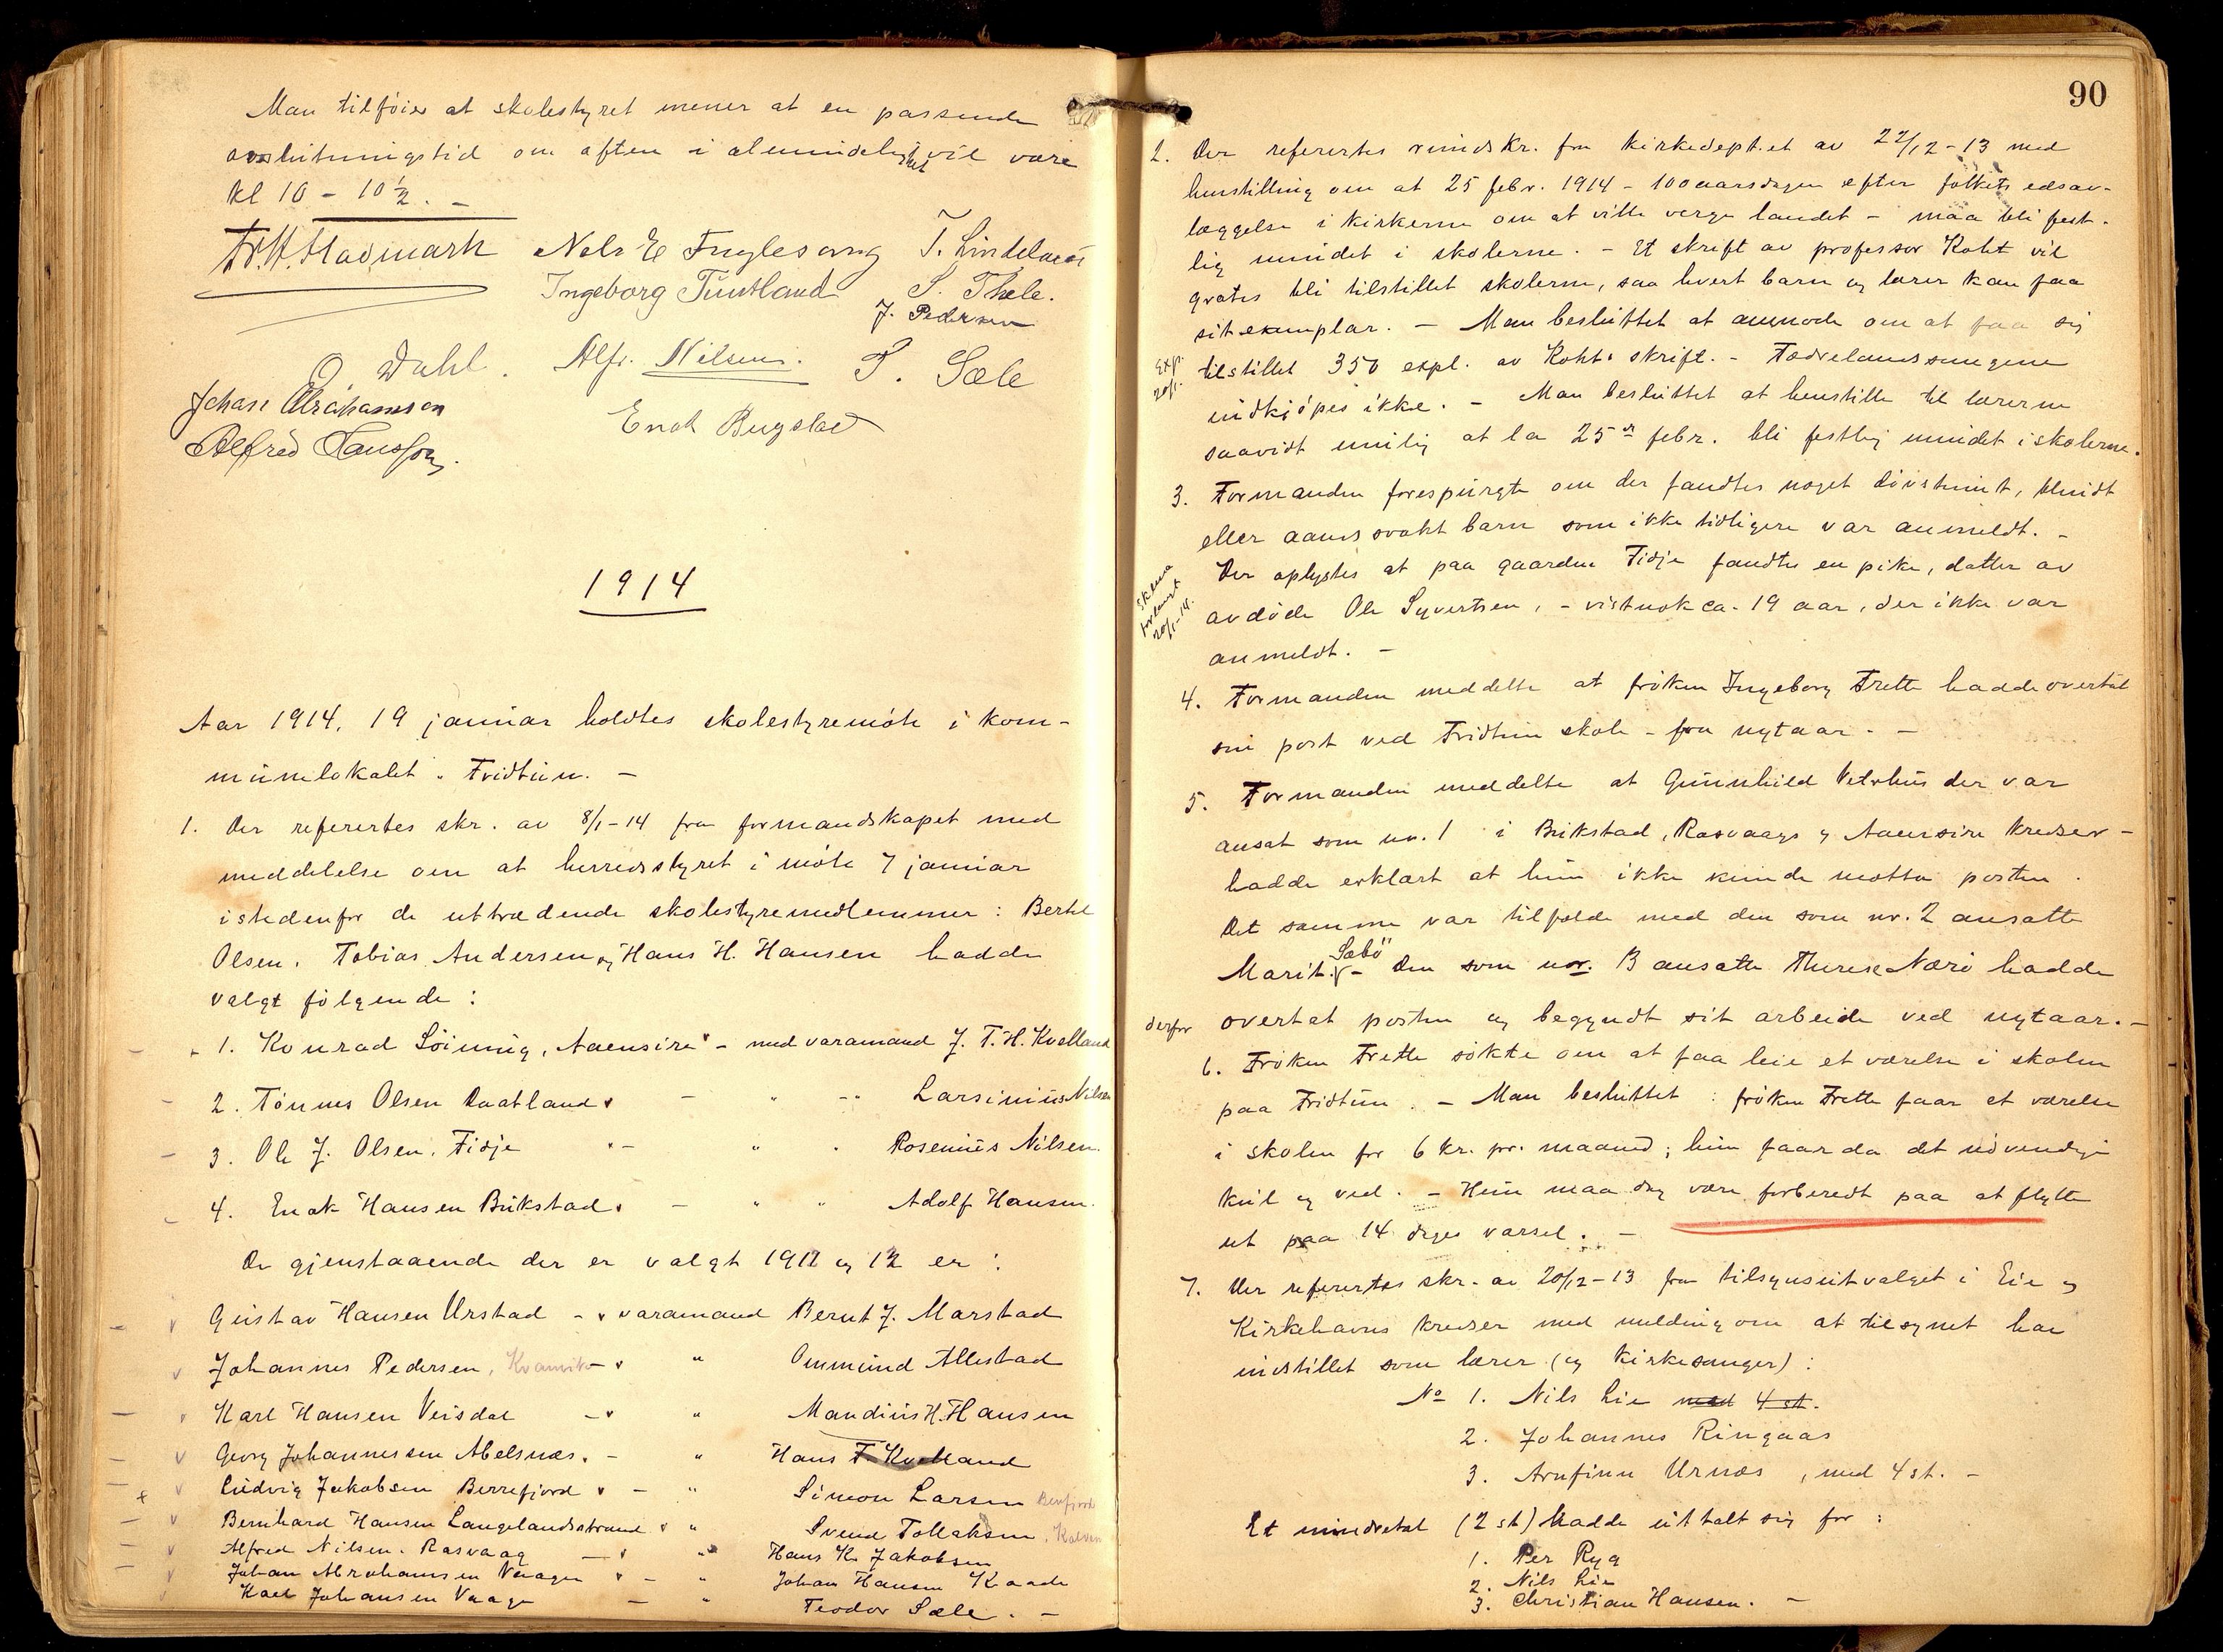 Man tilføier at skolestyret mener at en passende
avslutningstid om aften i alemindelighet vil være
kl 10 - 10½. -
Nels E Fuglesang
Ingeborg Tuntland
S. Thele.
J. Pedersen
O Dahl.
Alfr. Nilsen.
P. Sæle
Johan Abrahamsen
Enok Bugstad
Alfred
1914
Aar 1914, 19 januar holdtes skolestyremøte i kom-
munelokalet " Fridtun. -
1. Der referertes skr. av 8/1-14 fra formandskapet med
meddelelse om at herredsstyret i møte 7 januar
istedenfor de uttrædende skolestyremedlemmer : Bertel
Olsen, Tobias Andersen og Hans H. Hansen hadde
valgt følgende :
1. Konrad Løining, Aaensire - med varamand J. T. H. Kvelland
2. Tønnes Olsen Daatland - " - " Larsinius Nilsen
3. Ole J. Olsen, Fidje " - " " Rosenius Nilsen.
4. Enok Hansen Bukstad - " " Adolf Hansen.
De gjenstaaende der er valgt 1911 og 12 er :
Gustav Hansen Urstad - varamand Bernt J. Marstad
Johannes Pedersen, Kvanvik - " Ommund Allestad
Karl Hansen Veisdal - " Mandius H. Hansen
Georg Johannessen Abelsnæs. - " Hans F. Kvelland
Ludvig Jakobsen Berrefjord - " Simon Larsen Berrefjord
Bernhard Hansen Langelandsstrand " Svend Tollaksen,
Alfred Nilsen. Rasvaag - " Hans K. Jakobsen
Johan Abrahamsen Vaage - " Johan Hansen Kaade
Karl Johansen Vaage - " Teodor Sæle. -
90
2. Der referertes rundskr. fra kirkedept.et av 22/12-13 med
henstilling om at 25 febr. 1914 - 100aarsdagen efter folkets edsav-
læggelse i kirkerne om at ville verge landet - maa bli fest-
lig mindet i skolerne. - Et skrift av professor Koht vil
gratis bli tilstillet skolerne, saa hvert barn og lærer kan faa
sit exemplar. - Man besluttet at anmode om at faa sig
Exp. 20/1.
tilstillet 350 expl. av Kohts skrift. - Fædrelandssangene
indkjøpes ikke. - Man besluttet at henstille til lærerne
saavidt mulig at la 25de febr. bli festlig mindet i skolerne.
3. Formanden forespurgte om der fandtes noget døvstumt, blindt
eller aandssvakt barn som ikke tidligere var anmeldt. -
Skema forlangt 20/1-14.
Der oplystes at paa gaarden Fidje fandtes en pike, datter av
avdøde Ole Syvertsen, - vistnok ca. 19 aar, der ikke var
anmeldt. -
4. Formanden meddelte at frøken Ingeborg Frette hadde overtat
sin post ved Fridtun skole - fra nytaar. -
5. Formanden meddelte at Gunnhild Vetrhus der var
ansat som nr. 1 i Bukstad, Rasvaags og Aaensire kredser -
hadde erklært at hun ikke kunde motta posten.
Det samme var tilfælde med den som nr. 2 ansatte
Marit Sæbø - Den som nr. 3 ansatte Therese Nærø hadde
derfor overtat posten og begyndt sit arbeide ved nytaar. -
6. Frøken Frette søkte om at faa leie et værelse i skolen
paa Fridtun. - Man besluttet : frøken Frette faar et værelse
i skolen for 6 kr. pr. maaned ; hun faar da det nødvendige
kul og ved. - Hun maa dog være forberedt paa at flytte
ut paa 14 dages varsel. -
7. Der referertes skr. av 20/12-13 fra tilsynsutvalget i Eie og
Kirkehavns kredser med melding om at tilsynet har
indstillet som lærer (og kirkesanger) :
No 1. Nils Lie med 4 st.
2. Johannes Ringaas
3. Arnfinn Urnæs, med 4 st. -
Et mindretal (2 st) hadde uttalt sig for :
1. Per Ryg
2. Nils Lie
3. Christian Hansen. -